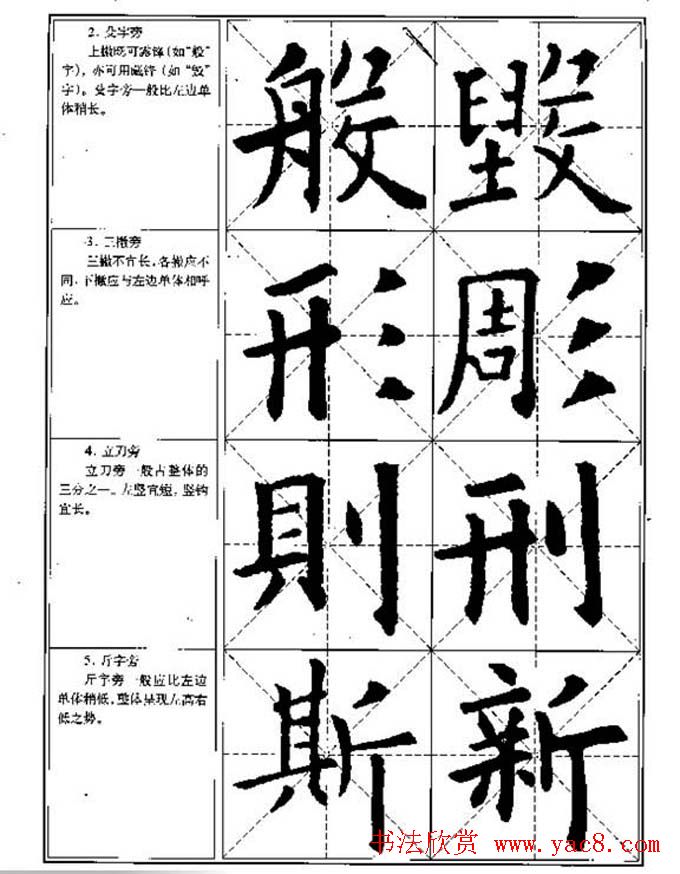 2. 殳字旁
上撇既可露锋(如“般”
字)，亦可用藏锋(如“毁”
字)。殳字旁一般比左边单
体稍长。
般毀
3. 三撇旁
三撇不宜长，各撇应不
同，下撇应与左边单体相呼
应。
形彫
4. 立刀旁
立刀旁一般占整体的
三分之一。左竖宜短，竖钩
宜长。
則刑
5. 斤字旁
斤字旁一般应比左边
单体稍低，整体呈现左高右
低之势。
斯新
书法欣赏 www.yac8.com